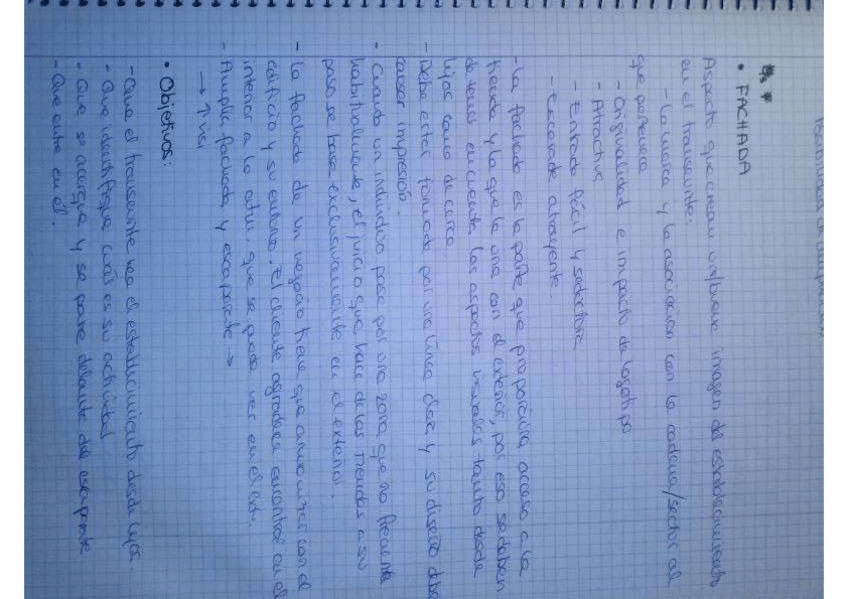 • FACHADA
Aspecto que crean una breve imagen del establecimiento
en el transeunte:
- La marca y la asociación con la cadena/sector al
que pertenece
- Originalidad e impacto de logotipo
- Atractiva
- Entrada fácil y seductora
- Escarade atrayente
- La fachada es la parte que proporciona acceso a la
tienda y la que la une con el exterior, por eso se deben
de tener en cuenta los aspectos visuales tanto desde
lejos como de cerca
- Debe estar formada por una línea clara y su diseño debe
causar impresión.
- Cuando un individuo pasa por una zona que no frecuenta
habitualmente, el juicio que hace de las tiendas a su
paso se basa exclusivamente en el exterior.
- La fachada de un negocio tiene que armonizar con el
edificio y su entorno. El cliente agradece encontrar en el
interior a lo que se puede ver en el ext.
- Amplia fachada y escaparate →
→ ↑
• Objetivos:
- Que el transeunte vea el establecimiento desde lejos
- Que identifique cuál es su actividad
- Que se acerque y se pare delante del escaparate
- Que entre en él.